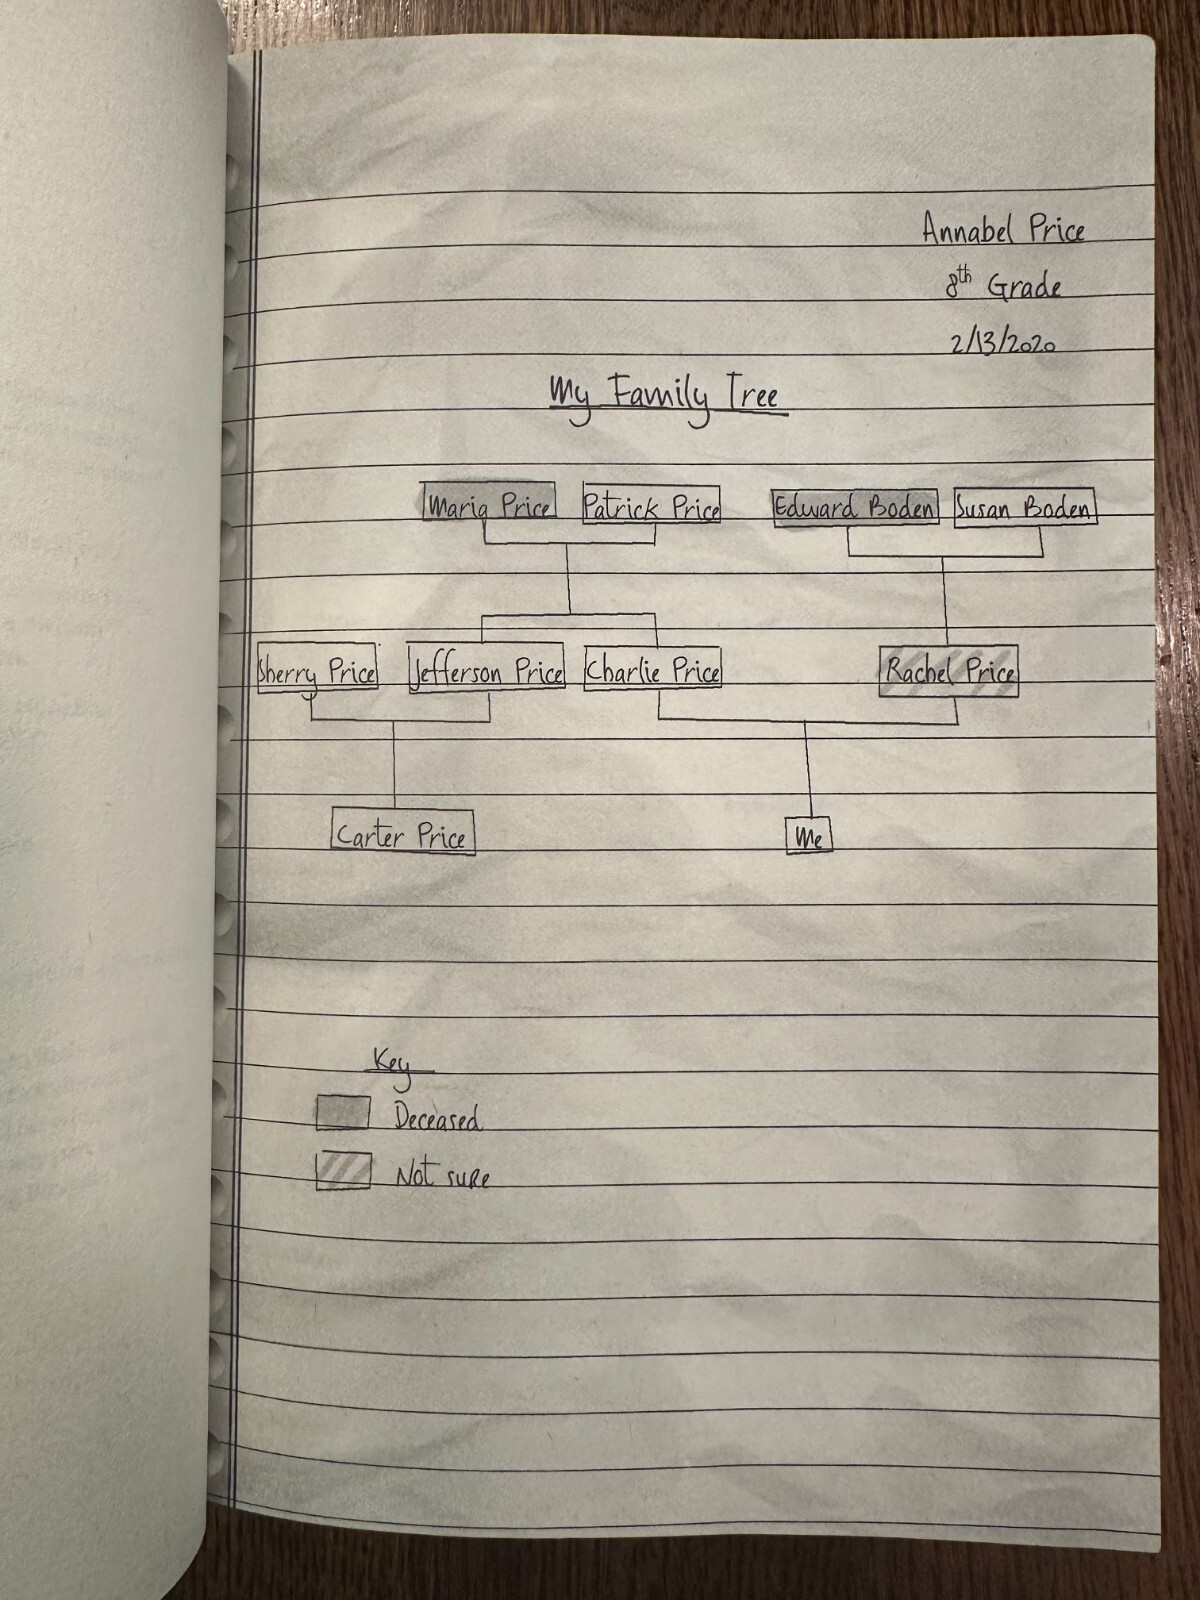 Annabel Price
8th Grade
2/13/2020
My Family Tree
Maria Price Patrick Price Edward Boden Susan Boden
Sherry Price Jefferson Price Charlie Price Rachel Price
Carter Price Me
Key
Deceased
Not sure